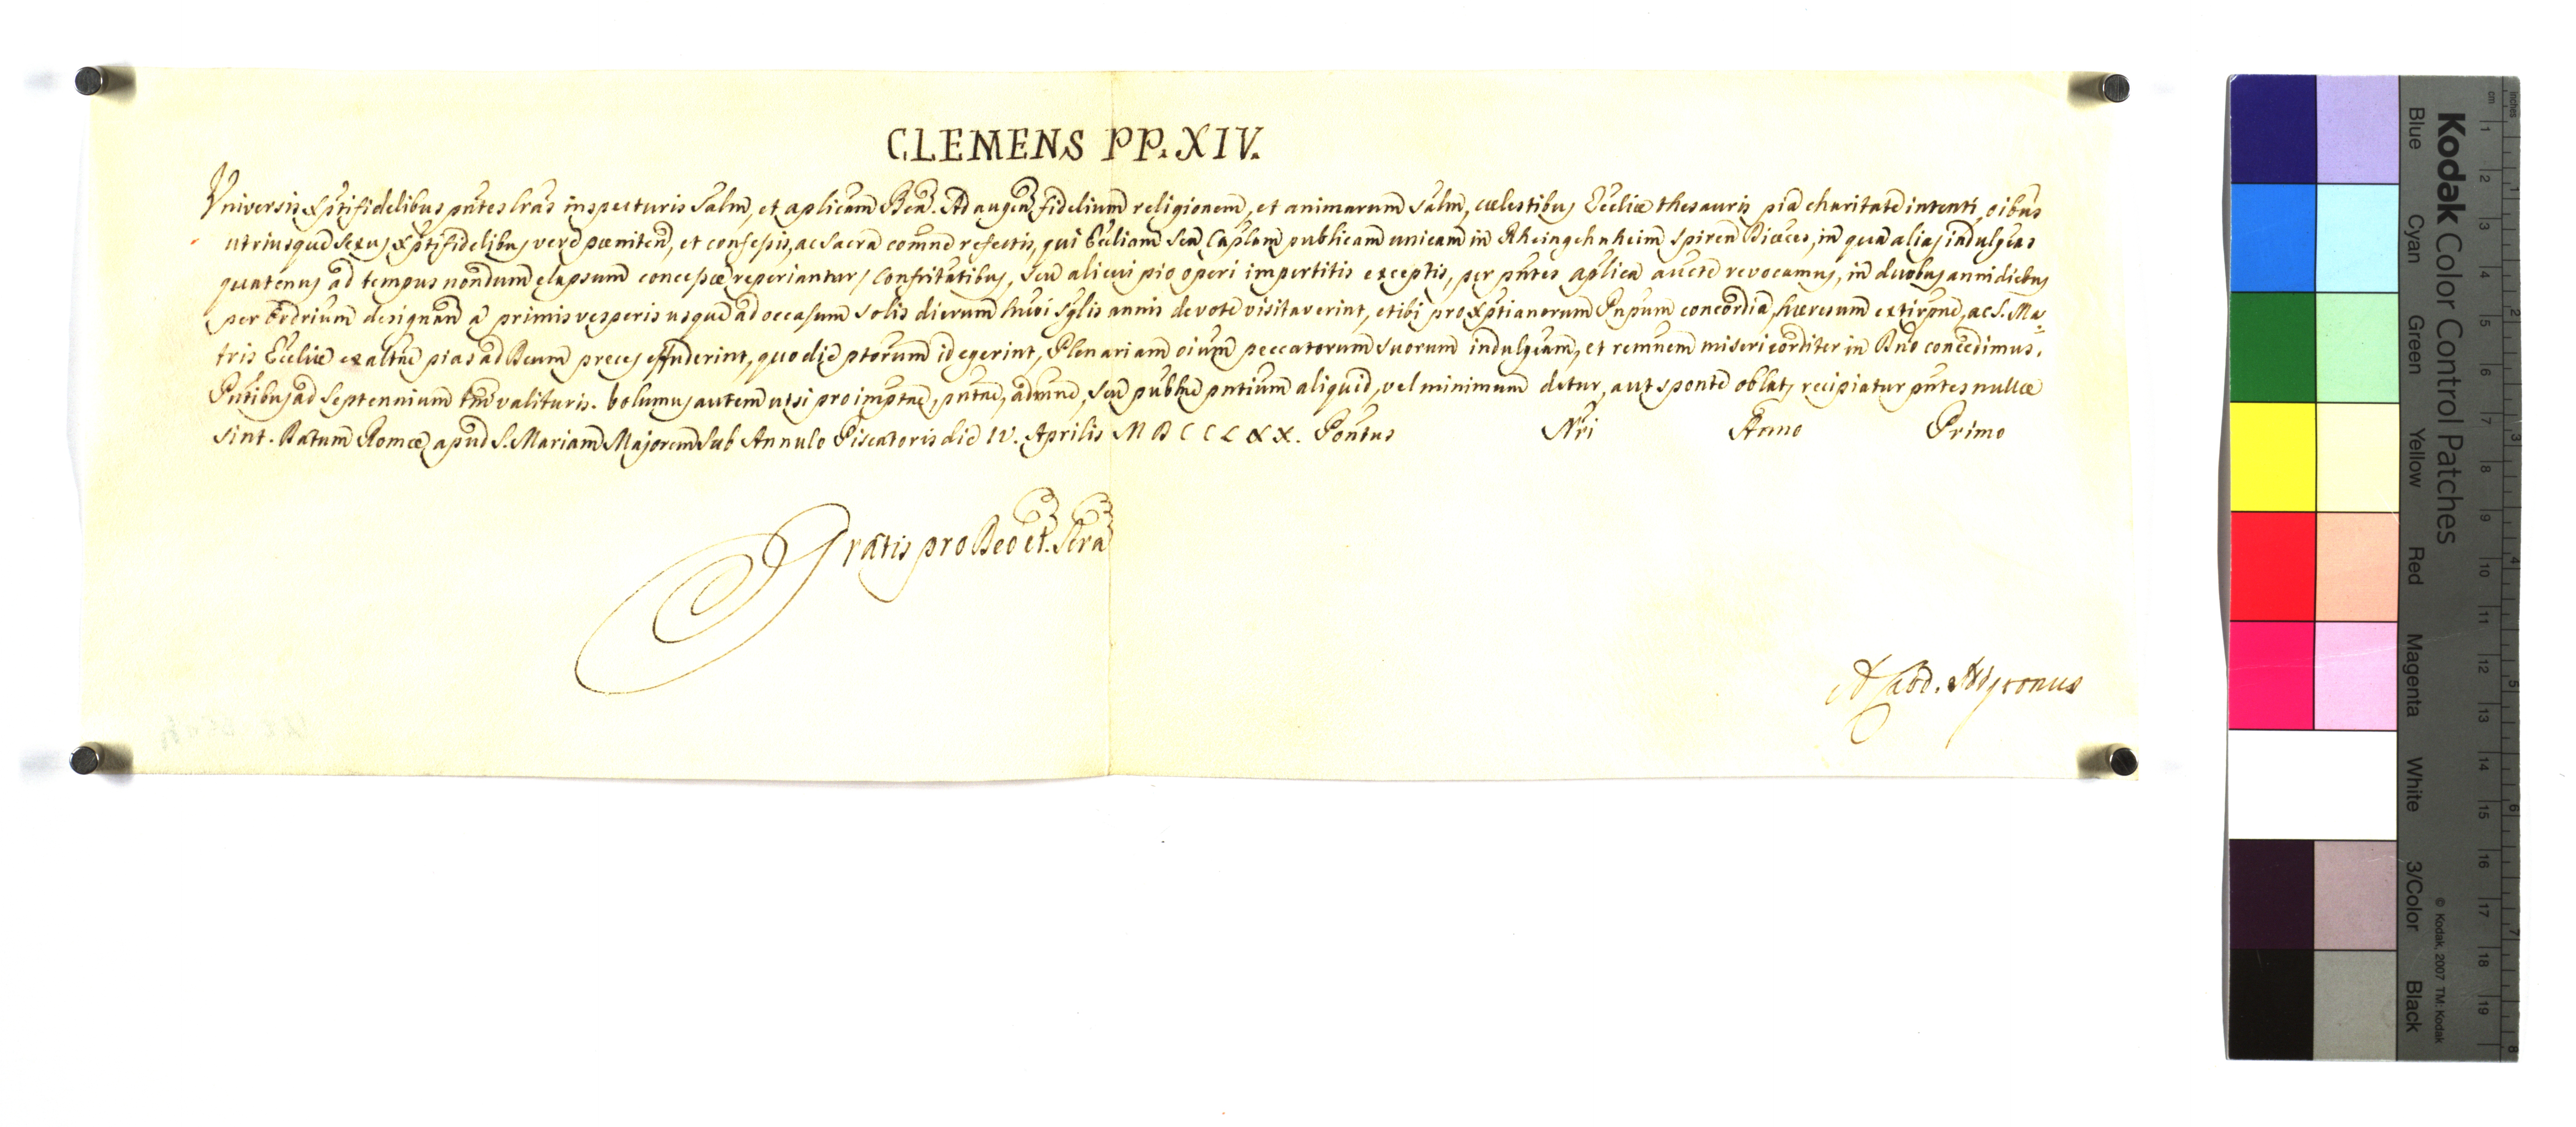 CLEMENS PP. XIV.
Universis Xp̃tifidelibus pñtes lras inspecturis Salm̃, et aplicam Ben. Ad augen fidelium religionem, et animarum salm̃, cœlestibus Ecc̃liæ thesauris pia charitate intenti oibus
utriusque sexus Xp̃tifidelibus vere pœniten, et confessis, ac sacra com̃ne refectis, qui Ecc̃liam seu Caplam publicam unicam in Rheingehnheim Spiren Diœces, in qua alias indulgeas
quatenus ad tempus nondum elapsum concessæ reperiantur, Confrit̃atibus, seu alicui pio operi impertitis exceptis, per pñtes aplica aucte revocamus, in duobus anni diebus
per Ordrium designan a primis vesperis usque ad occasum solis dierum huõi sglis annis devote visitaverint, et ibi pro Xp̃tianorum Pnpum concordia, hæresum extirpne, ac S. Ma=
tris Ecc̃liæ exaltne pias ad Deum preces effuderint, quo die ptorum id egerint, Plenariam oium peccatorum suorum indulgeam, et remnem misericorditer in Dno concedimus.
Pñtibus ad Septennium tm̃ valituris. Volumus autem ut si pro impt̃ne, pñtne, admne, seu publne pntium aliquid, vel minimum detur, aut sponte oblat, recipiatur pñtes nullæ
sint. Datum Romæ apud S. Mariam Majorem sub Annulo Piscatoris die IV. Aprilis MDCCLXX. Pontus Nri Anno Primo
Gratis pro Deo et Scra
Kodak Color Control Patches
Blue Cyan Green Yellow Red Magenta White 3/Color Black
© Kodak, 2007 TM: Kodak
cm 1 2 3 4 5 6 7 8 9 10 11 12 13 14 15 16 17 18 19
inches 1 2 3 4 5 6 7 8